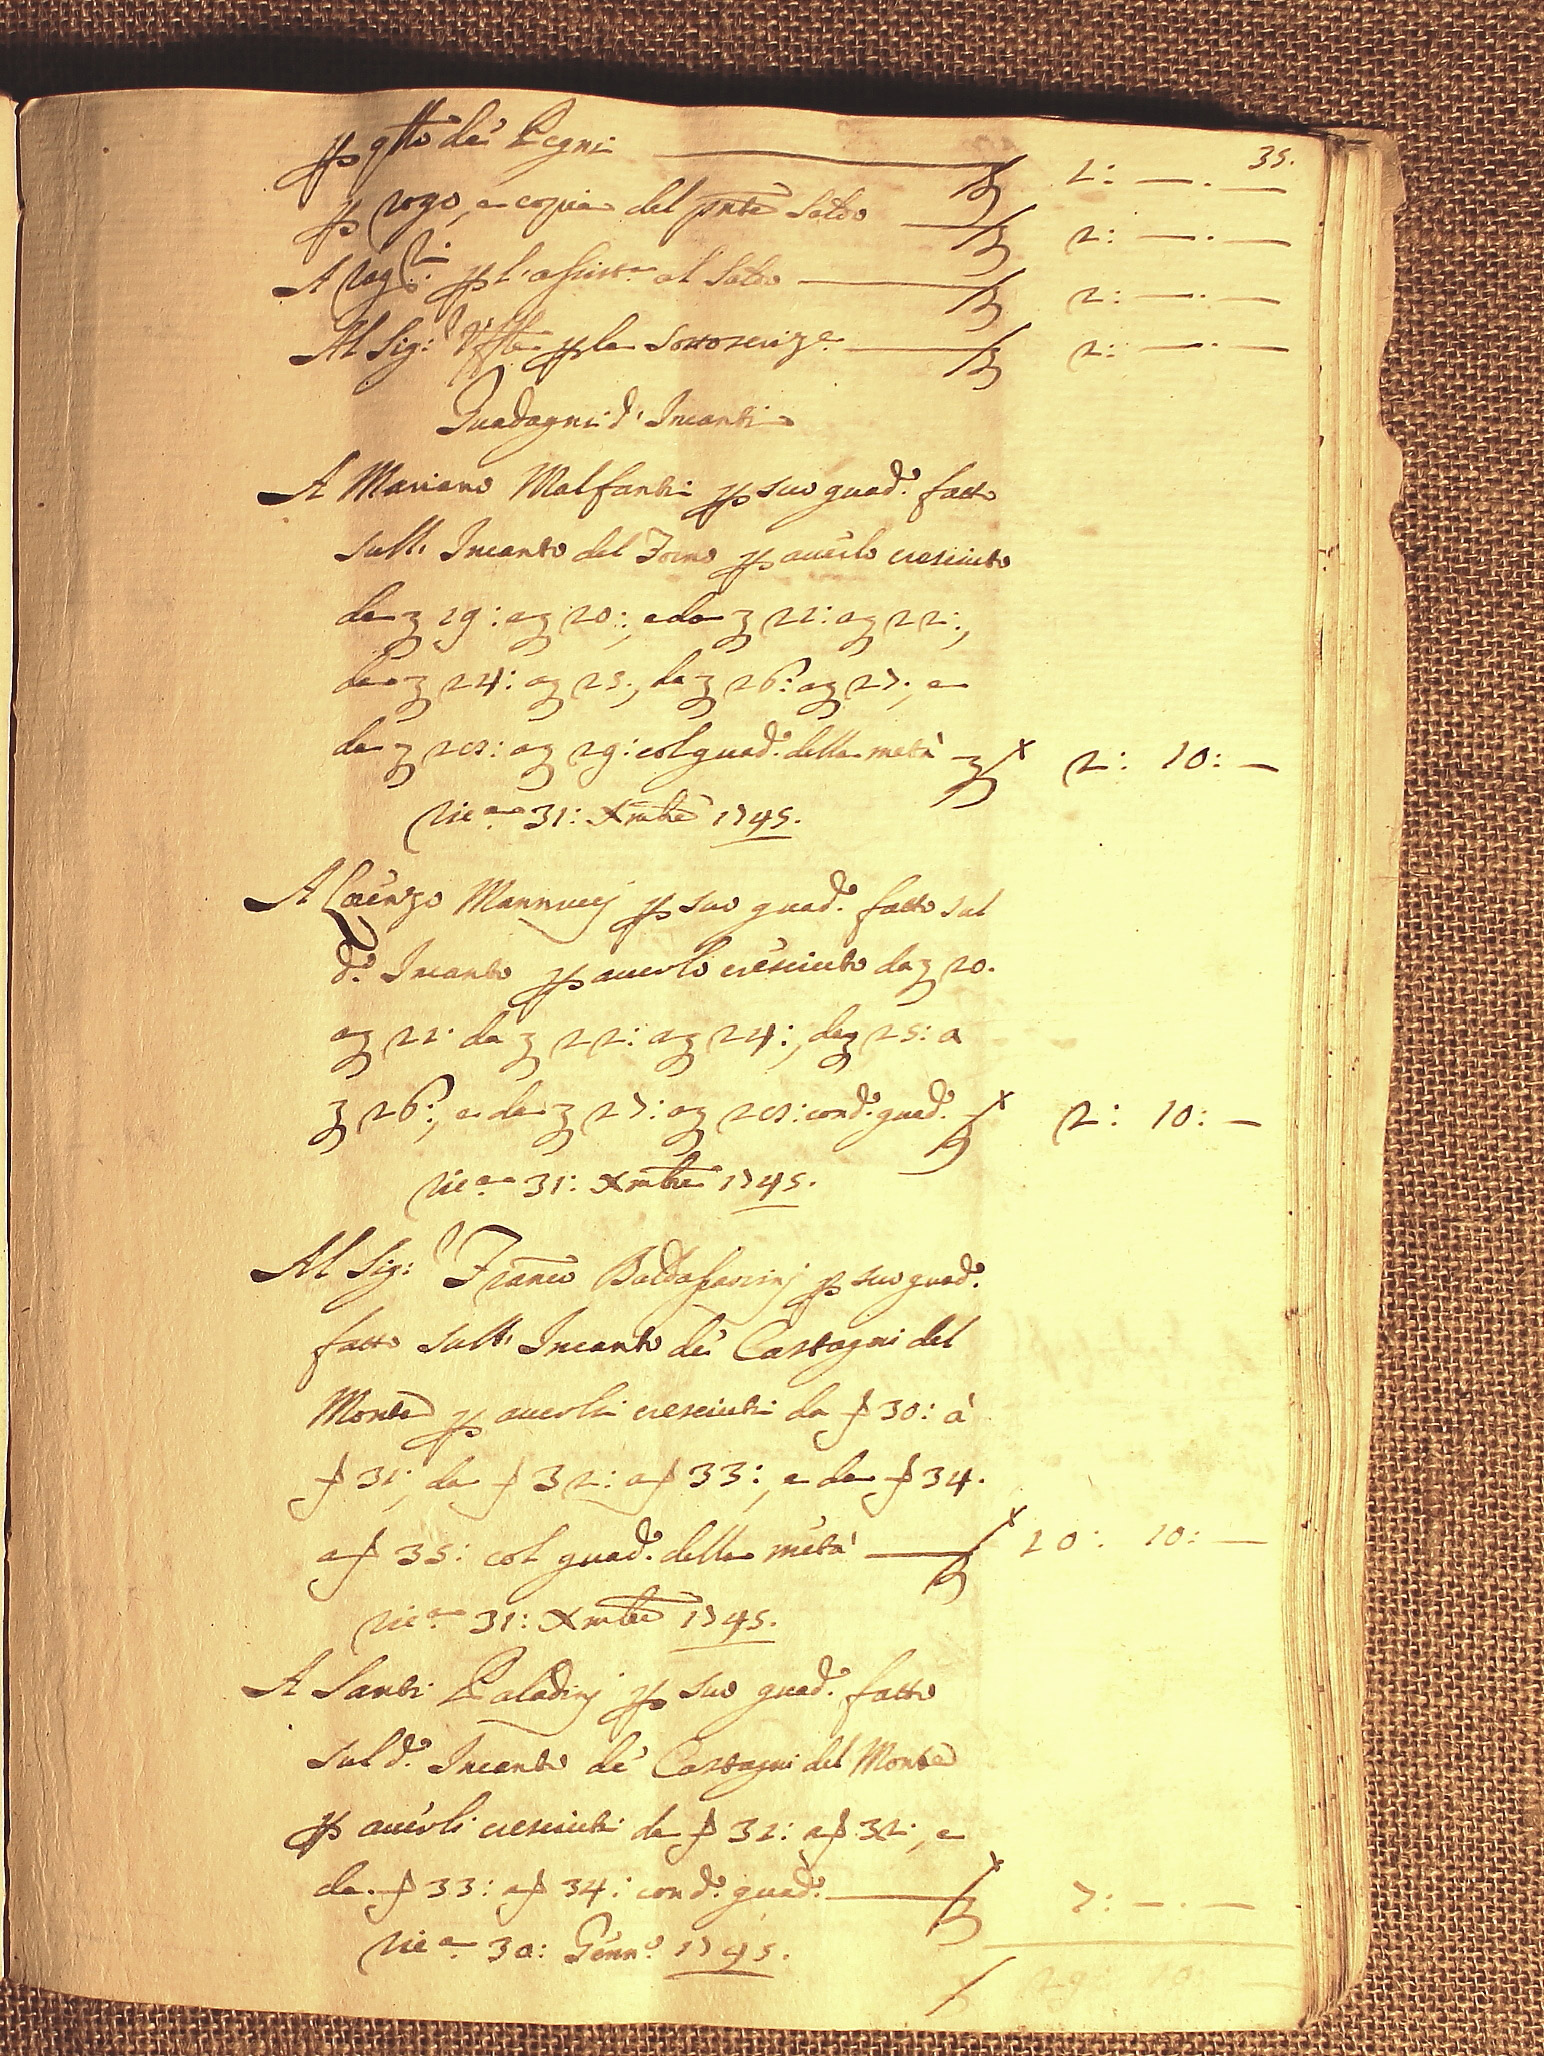 35.
p qsto de' Pegni 1: — . —
p rogo, e copia del pnte Saldo 2: — . —
A p l'assist.a al Saldo 2: — . —
Al Sig.r p la sottoscriz.e 2: — . —
Guadagni d'Incanti
A Mariano Malfanti p suo guad.o fatto
sull' Incanto del Forno p auerlo cresciuto
da 19: a 20:, e da 21: a 22:,
da 24: a 25:, da 26: a 27:, e
da 28: a 29: col guad.o della metà 2: 10: —
31: Xmbre 1745.
A Lorenzo Mannuccj p suo guad.o fatto sul
d.o Incanto p auerlo cresciuto da 20.
a 21: da 22: a 24:, da 25: a
26:, e da 27: a 28: con d.o guad.o 2: 10: —
31: Xmbre 1745.
Al Sig.r Franco Baldassarinj p suo guad.o
fatto sull' Incanto de' Castagni del
Monte p auerli cresciuti da f 30: à
f 31:, da f 32: a f 33:, e da f 34.
a f 35: col guad.o della metà 10: 10: —
31: Xmbre 1745.
A Santi Paladinj p suo guad.o fatto
sul d.o Incanto de' Castagni del Monte
p auerli cresciuti da f 31: a f 32:, e
da f 33: a f 34: con d.o guad.o 7: — . —
30: Genn.o 1745.
29: 10: —